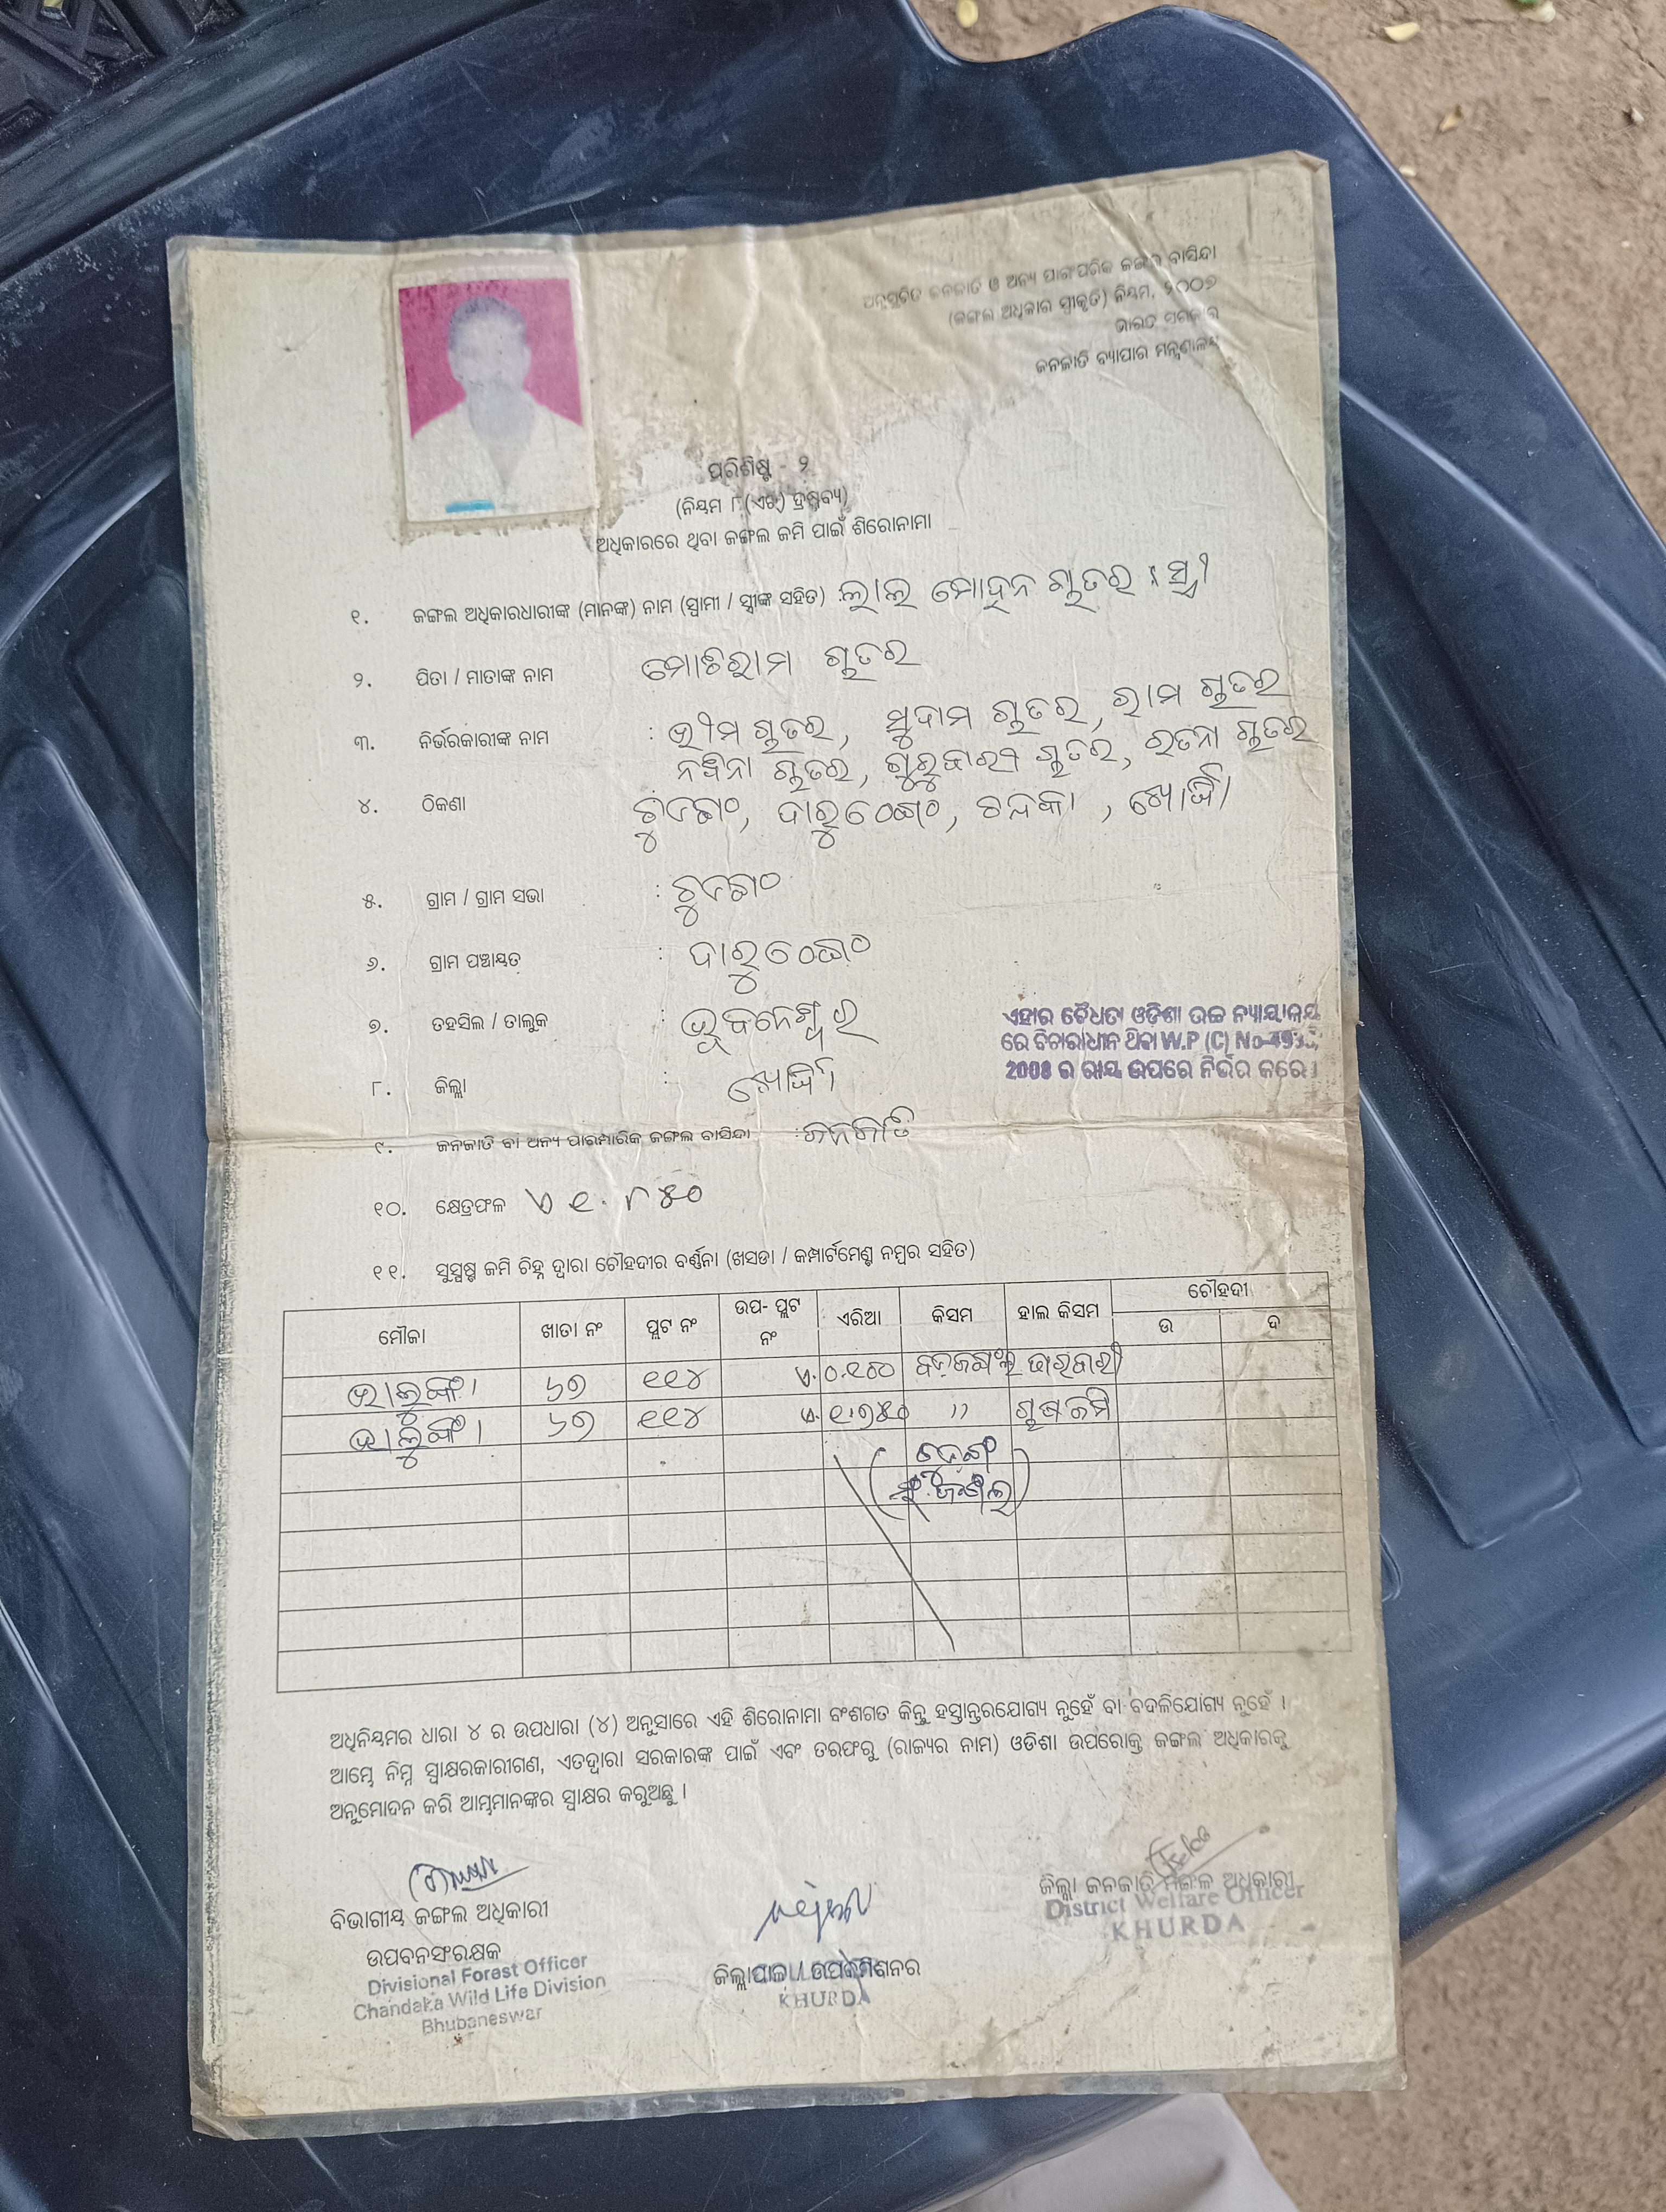 ଅନୁସୂଚିତ ଜନଜାତି ଓ ଅନ୍ୟ ପାରମ୍ପରିକ ଜଙ୍ଗଲ ବାସିନ୍ଦା
(ଜଙ୍ଗଲ ଅଧିକାର ସ୍ୱୀକୃତି) ନିୟମ, ୨୦୦୭
ଭାରତ ସରକାର
ଜନଜାତି ବ୍ୟାପାର ମନ୍ତ୍ରଣାଳୟ
ପରିଶିଷ୍ଟ - ୨
(ନିୟମ ୮ (ଏଚ୍) ଦ୍ରଷ୍ଟବ୍ୟ)
ଅଧିକାରରେ ଥିବା ଜଙ୍ଗଲ ଜମି ପାଇଁ ଶିରୋନାମା
୧. ଜଙ୍ଗଲ ଅଧିକାରଧାରୀଙ୍କ (ମାନଙ୍କ) ନାମ (ସ୍ୱାମୀ / ସ୍ତ୍ରୀଙ୍କ ସହିତ) : ଲାଲ ମୋହନ
୨. ପିତା / ମାତାଙ୍କ ନାମ ମୋତିରାମ
୩. ନିର୍ଭରକାରୀଙ୍କ ନାମ : ଭୀମ ସୁଦାମ ରାମ
ଗୁରୁବାରୀ ରତନା
୪. ଠିକଣା ଦାରୁଠେଙ୍ଗ, ଚନ୍ଦକା, ଖୋର୍ଦ୍ଧା
୫. ଗ୍ରାମ / ଗ୍ରାମ ସଭା :
୬. ଗ୍ରାମ ପଞ୍ଚାୟତ : ଦାରୁଠେଙ୍ଗ
୭. ତହସିଲ / ତାଲୁକ : ଭୁବନେଶ୍ୱର
ଏହାର ବୈଧତା ଓଡିଶା ଉଚ୍ଚ ନ୍ୟାୟାଳୟ
ରେ ବିଚାରାଧୀନ ଥିବା W.P (C) No-
2008 ର ରାୟ ଉପରେ ନିର୍ଭର କରେ ।
୮. ଜିଲ୍ଲା : ଖୋର୍ଦ୍ଧା
୯. ଜନଜାତି ବା ଅନ୍ୟ ପାରମ୍ପାରିକ ଜଙ୍ଗଲ ବାସିନ୍ଦା : ଜନଜାତି
୧୦. କ୍ଷେତ୍ରଫଳ ଏ ୧.୮୪୦
୧୧. ସୁସ୍ପଷ୍ଟ ଜମି ଚିହ୍ନ ଦ୍ୱାରା ଚୌହଦୀର ବର୍ଣ୍ଣନା (ଖସଡା / କମ୍ପାର୍ଟମେଣ୍ଟ ନମ୍ବର ସହିତ)
ମୌଜା ଖାତା ନଂ ପ୍ଲଟ ନଂ ଉପ- ପ୍ଲଟ ନଂ ଏରିଆ କିସମ ହାଲ କିସମ ଚୌହଦୀ
ଉ ଦ
ଭାଲୁଙ୍କା ୬୭ ୧୧୪ ଏ. ୦.୧୦୦ ଘରବାରୀ
ଭାଲୁଙ୍କା ୬୭ ୧୧୪ ଏ. ୧.୭୪୦ " ଚାଷଜମି
ଅଧିନିୟମର ଧାରା ୪ ର ଉପଧାରା (୪) ଅନୁସାରେ ଏହି ଶିରୋନାମା ବଂଶଗତ କିନ୍ତୁ ହସ୍ତାନ୍ତରଯୋଗ୍ୟ ନୁହେଁ ବା ବଦଳିଯୋଗ୍ୟ ନୁହେଁ ।
ଆମ୍ଭେ ନିମ୍ନ ସ୍ୱାକ୍ଷରକାରୀଗଣ, ଏତଦ୍ୱାରା ସରକାରଙ୍କ ପାଇଁ ଏବଂ ତରଫରୁ (ରାଜ୍ୟର ନାମ) ଓଡିଶା ଉପରୋକ୍ତ ଜଙ୍ଗଲ ଅଧିକାରକୁ
ଅନୁମୋଦନ କରି ଆମ୍ଭମାନଙ୍କର ସ୍ୱାକ୍ଷର କରୁଅଛୁ ।
ବିଭାଗୀୟ ଜଙ୍ଗଲ ଅଧିକାରୀ
ଉପବନସଂରକ୍ଷକ
Divisional Forest Officer
Chandaka Wild Life Division
Bhubaneswar
ଜିଲ୍ଲାପାଳ / ଉପକମିଶନର
KHURDA
ଜିଲ୍ଲା ଜନଜାତି ମଙ୍ଗଳ ଅଧିକାରୀ
District Welfare Officer
KHURDA